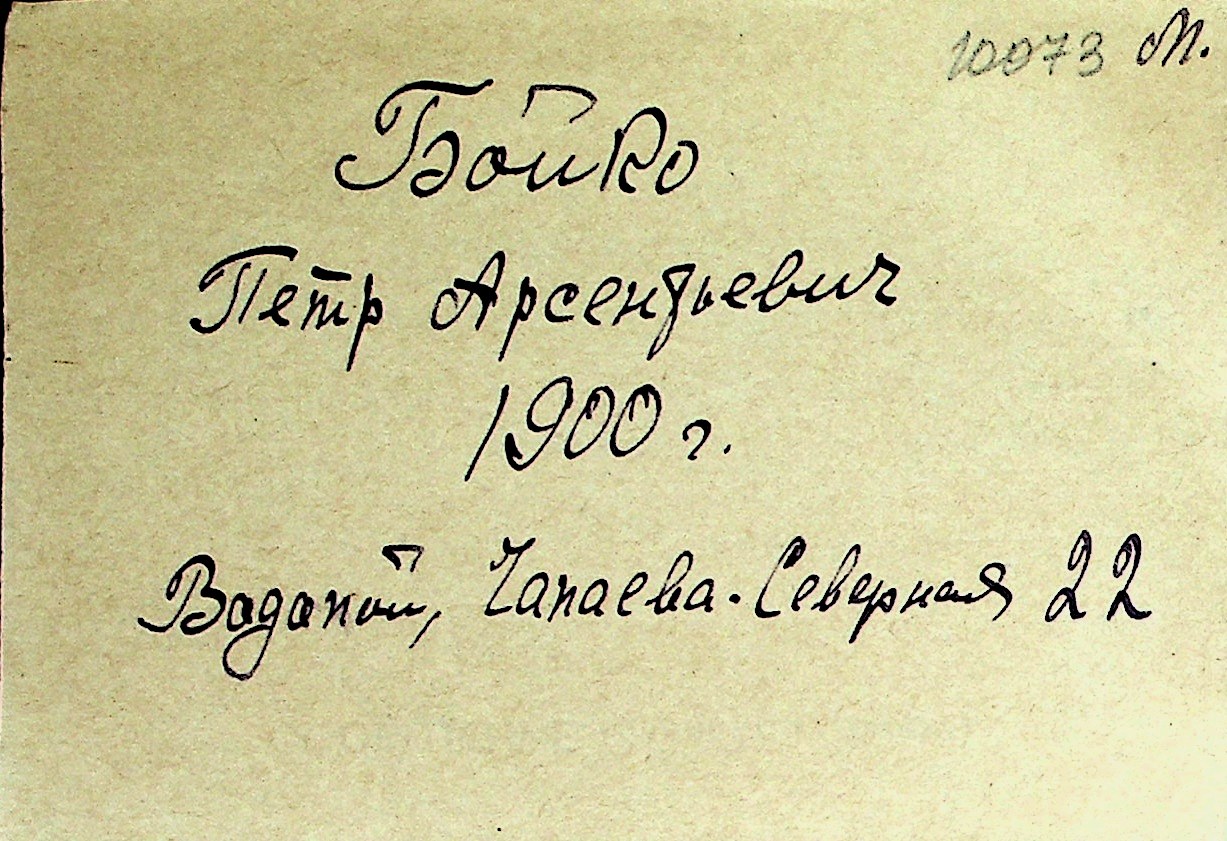 10073 М.
Бойко
Петр Арсентьевич
1900 г.
Водопой, Чапаева-Северная 22